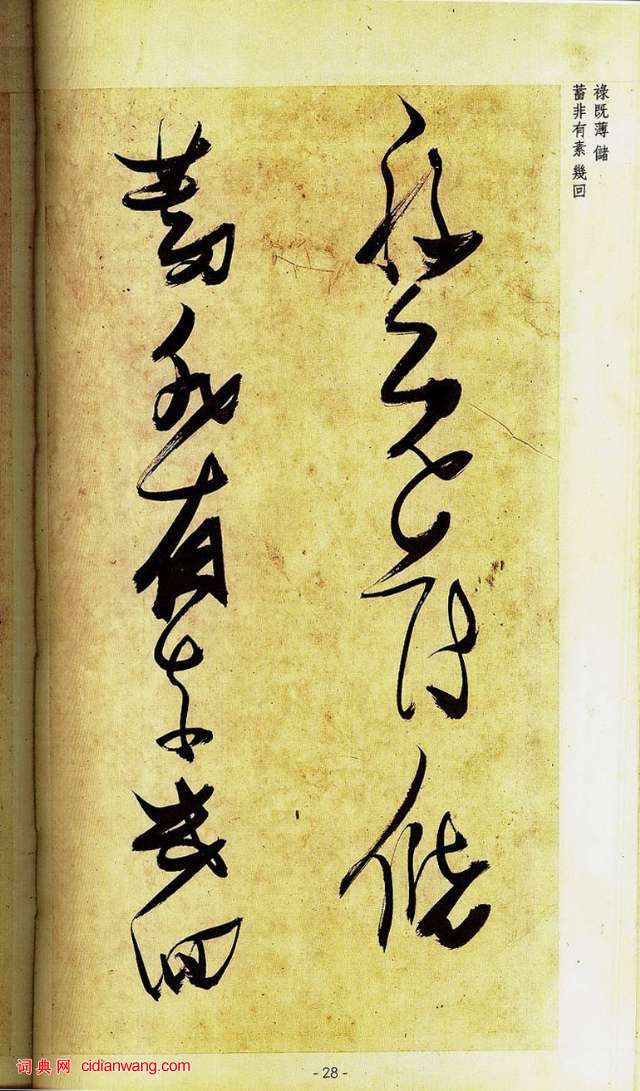 祿既薄 儲
蓄非有素 幾回
祿既薄儲
蓄非有素幾回
- 28 -
词典网 cidianwang.com